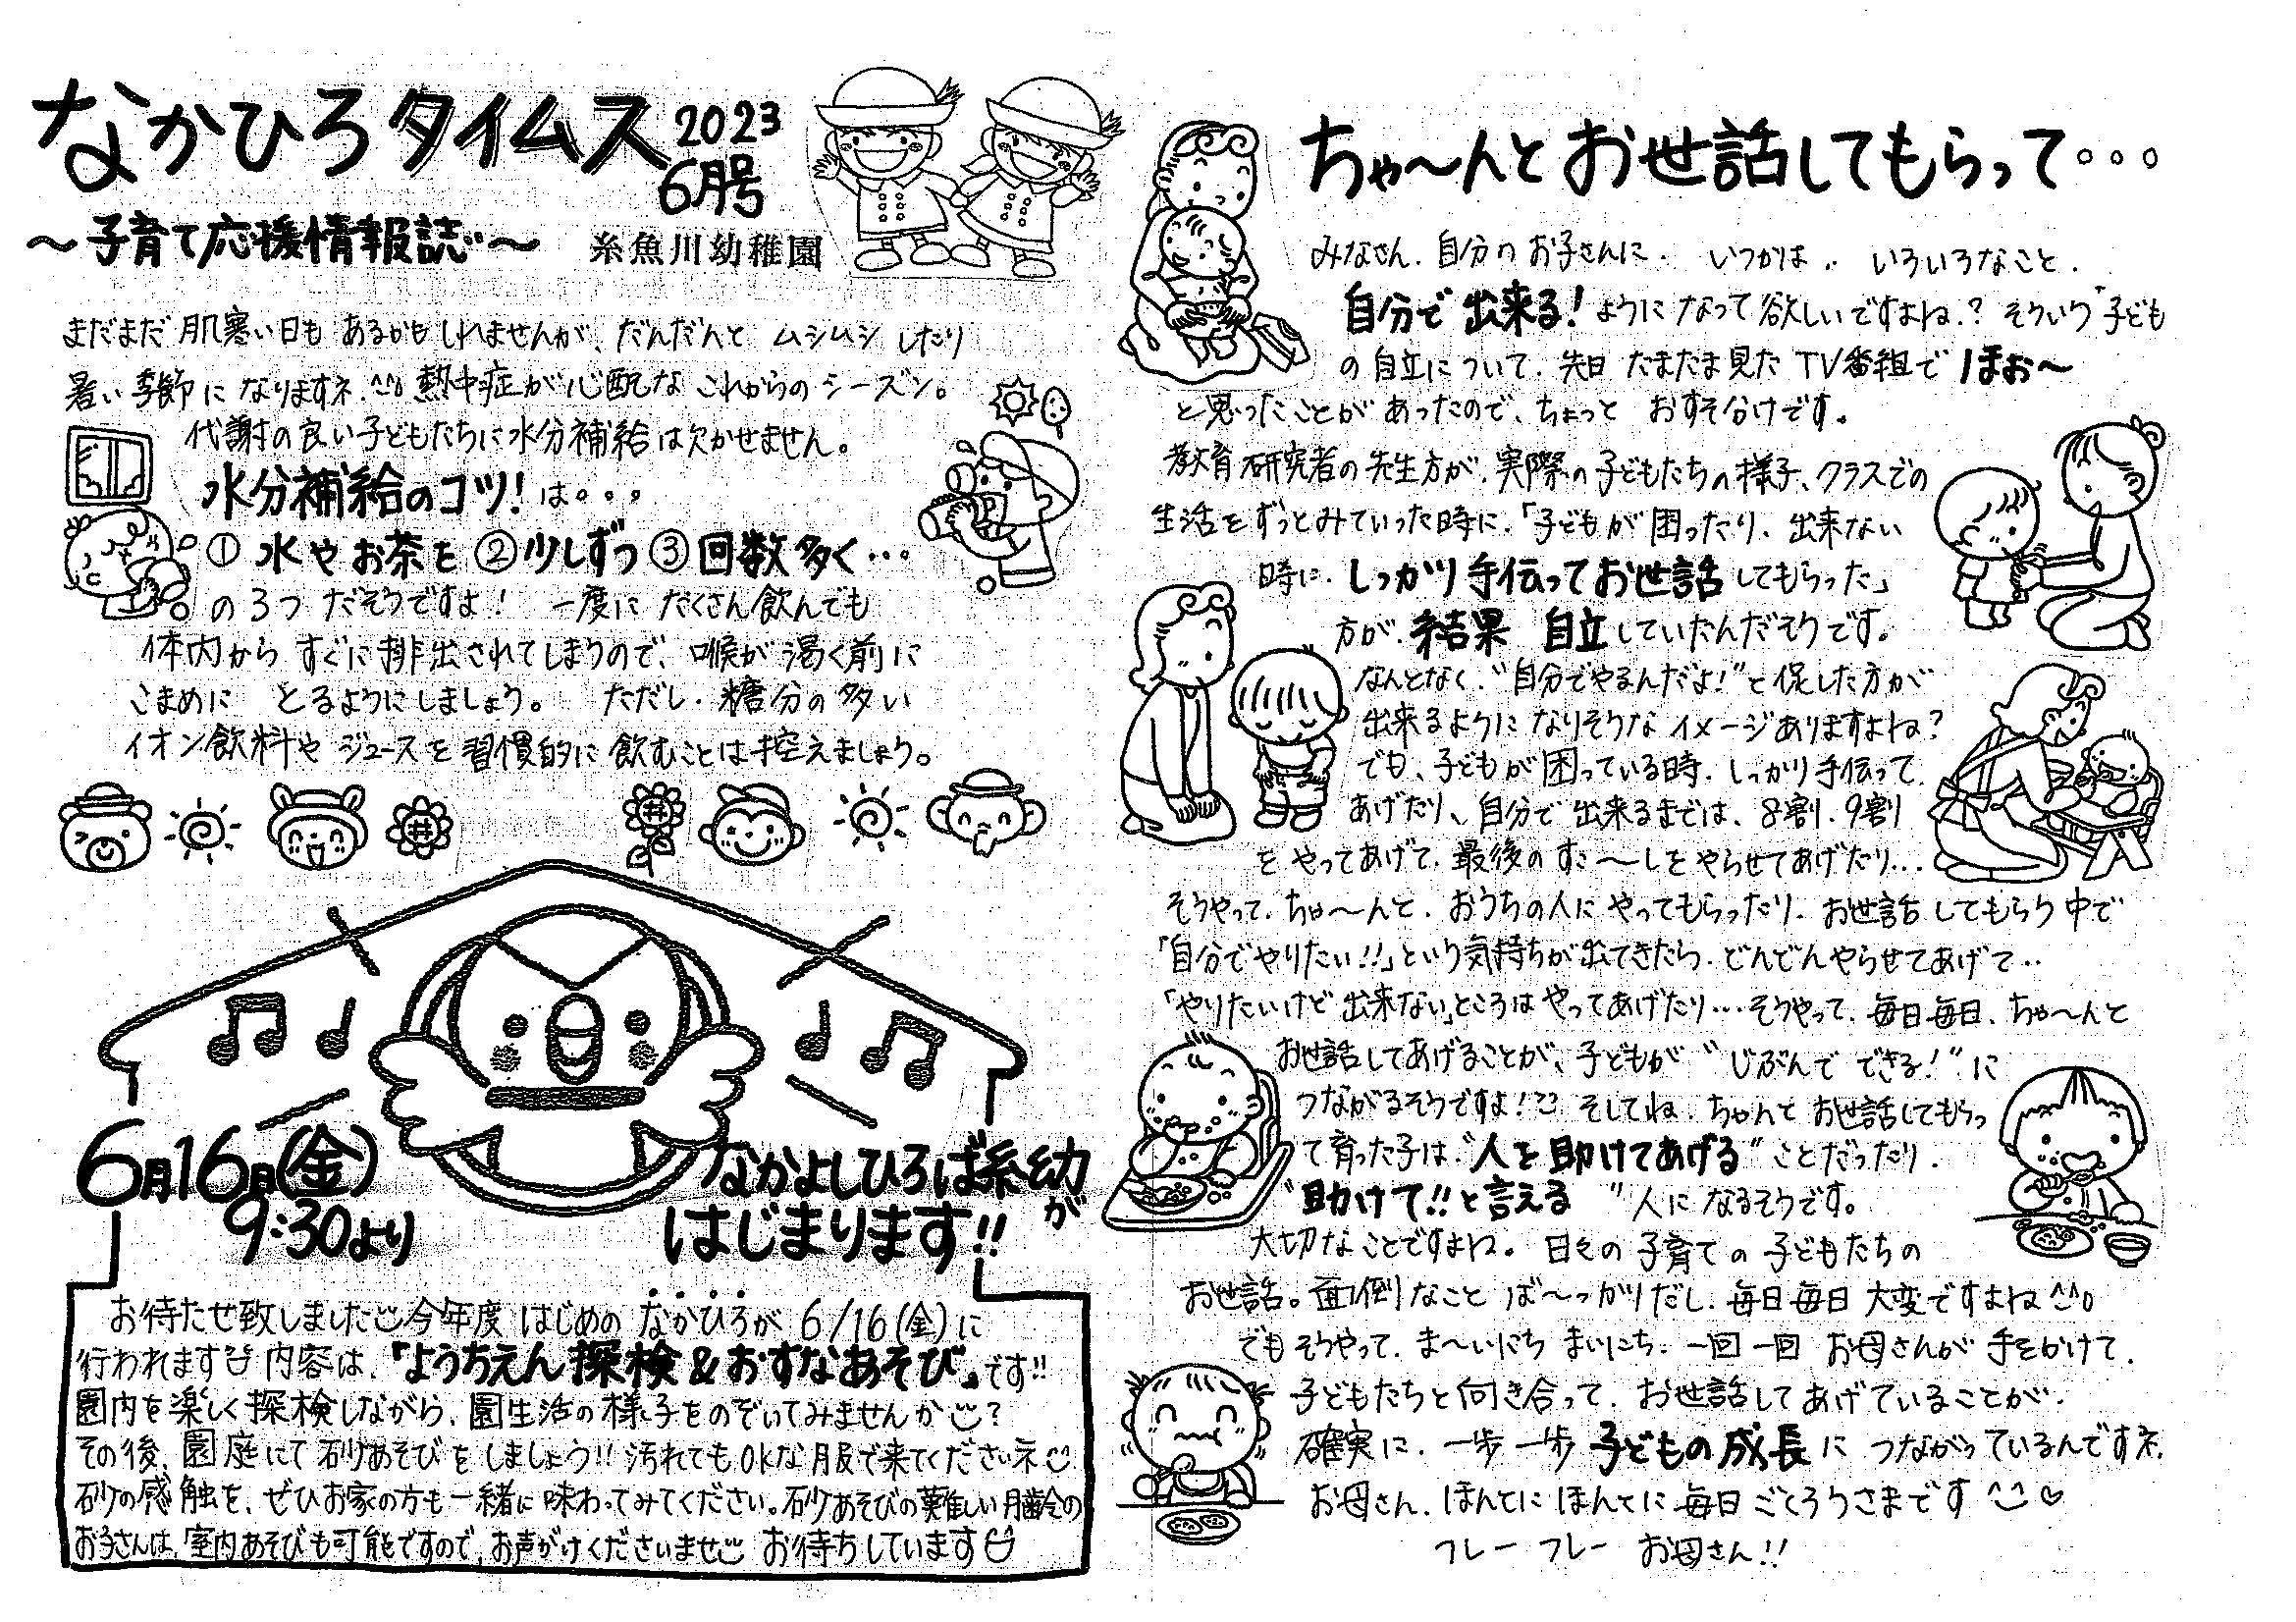 なかひろタイムス 2023 6月号
～子育て応援情報誌～ 糸魚川幼稚園
まだまだ 肌寒い日も あるかもしれませんが、だんだんと ムシムシ したり
暑い季節に なりますネ。熱中症が心配な これからのシーズン。
代謝の良い子どもたちに水分補給は欠かせません。
水分補給のコツ! は。。。
① 水やお茶を ②少しずつ ③回数多く…
の3つ だそうですよ! 一度に たくさん飲んでも
体内から すぐに排出されてしまうので、喉が渇く前に
こまめに とるようにしましょう。 ただし、糖分の多い
イオン飲料や ジュースを習慣的に飲むことは控えましょう。
6月16日(金)
9:30より
なかよしひろば糸幼が
はじまります!!
お待たせ致しました 今年度 はじめの なかひろが 6/16(金)に
行われます 内容は、「ようちえん探検&おすなあそび」です!!
園内を楽しく探検しながら、園生活の様子をのぞいてみませんか?
その後、園庭にて砂あそびをしましょう!! 汚れてもOKな服で来てくださいネ
砂の感触を、ぜひお家の方も一緒に味わってみてください。砂あそびの難しい月齢の
お子さんは、室内あそびも可能ですので、お声がけくださいませ お待ちしています
ちゃ～んとお世話してもらって・・・
みなさん、自分のお子さんに、 いつかは、、 いろいろなこと、
自分で出来る! ようになって欲しいですよね? そういう子ども
の自立について、先日 たまたま見たTV番組で ほぉ～
と思ったことがあったので、ちょっと おすそ分けです。
教育研究者の先生方が、実際の子どもたちの様子、クラスでの
生活をずっとみていった時に、「子どもが困ったり、出来ない
時に、しっかり手伝ってお世話してもらった」
方が、結果 自立していたんだそうです。
なんとなく、“自分でやるんだよ!”と促した方が
出来るように なりそうな イメージありますよね?
でも、子どもが困っている時、しっかり手伝って
あげたり、自分で出来るまでは、8割、9割
を やってあげて、最後のすこ～しをやらせてあげたり…
そうやって、ちゃ～んと、おうちの人に やってもらったり、お世話してもらう中で
「自分でやりたい!!」という気持ちが出てきたら、どんどんやらせてあげて‥
「やりたいけど出来ない」ところはやってあげたり…そうやって、毎日毎日、ちゃ～んと
お世話してあげることが、子どもが “じぶんで できる!” に
つながるそうですよ! そしてね、ちゃんと お世話してもらっ
て育った子は、“人を助けてあげる” ことだったり、
“助けて!!と言える ” 人に なるそうです。
大切なことですよね。 日々の子育ての 子どもたちの
お世話。面倒なこと ば～っかりだし、毎日毎日 大変ですよね
でもそうやって、ま～いにち まいにち、一回一回 お母さんが 手をかけて、
子どもたちと向き合って、お世話してあげていることが、
確実に、一歩一歩 子どもの成長に つながっているんですネ。
お母さん、ほんとに ほんとに毎日 ごくろうさまです♡
フレー フレー お母さん!!